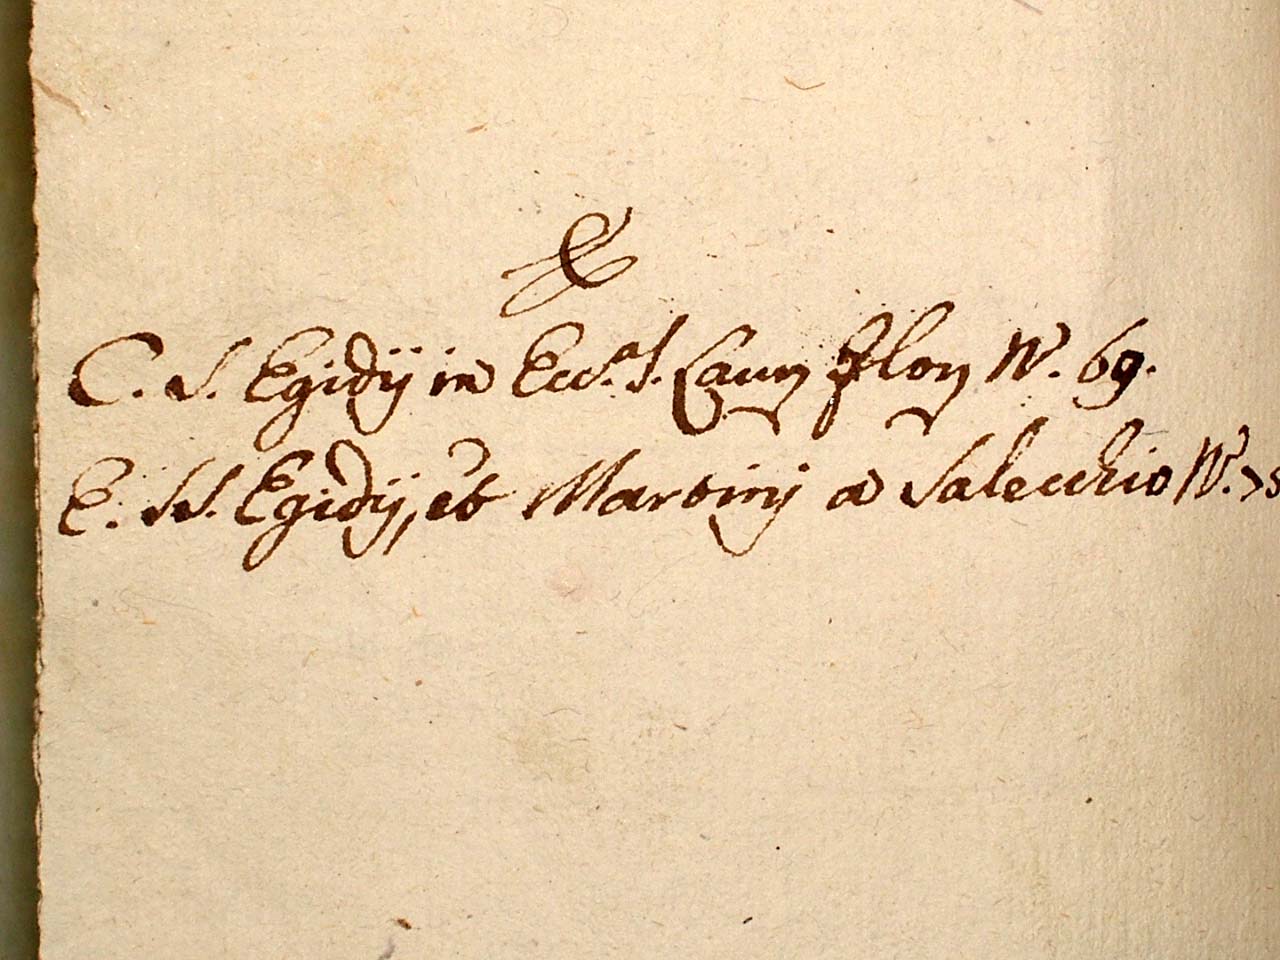 E
C. S. Egidij in Eccl.a S. Laurz Florz N. 69.
E. SS. Egidij, et Martinj a Salecchio N.